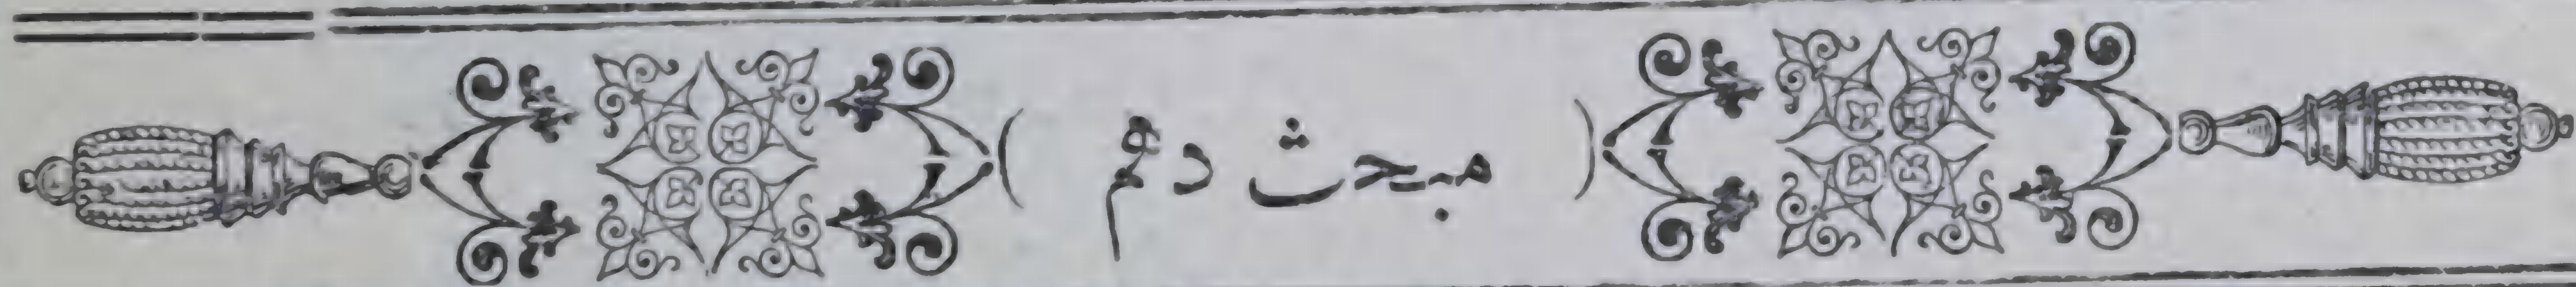 ( مبحث دؤم )